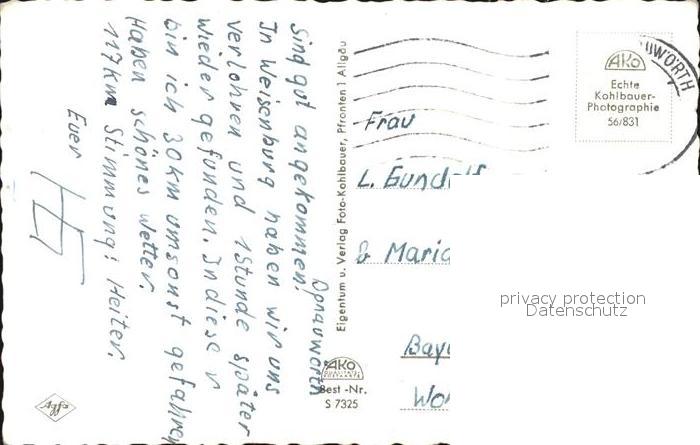 Donauwörth
Sind gut angekommen.
In Weisenburg haben wir uns
verlohren und 1 Stunde später
wieder gefunden. In dieser
bin ich 30 km umsonst gefahren
Haben schönes Wetter.
117 km Stimmung: Heiter.
Euer
Eigentum u. Verlag Foto-Kohlbauer, Pfronten i Allgäu
AKO
QUALITÄTS-
POSTKARTE
Best.-Nr.
S 7325
Agfa
UWÖRTH
AKO
Echte
Kohlbauer-
Photographie
56/831
Frau
L. Gundolf
& Maria
Bay
Wo
privacy protection
Datenschutz